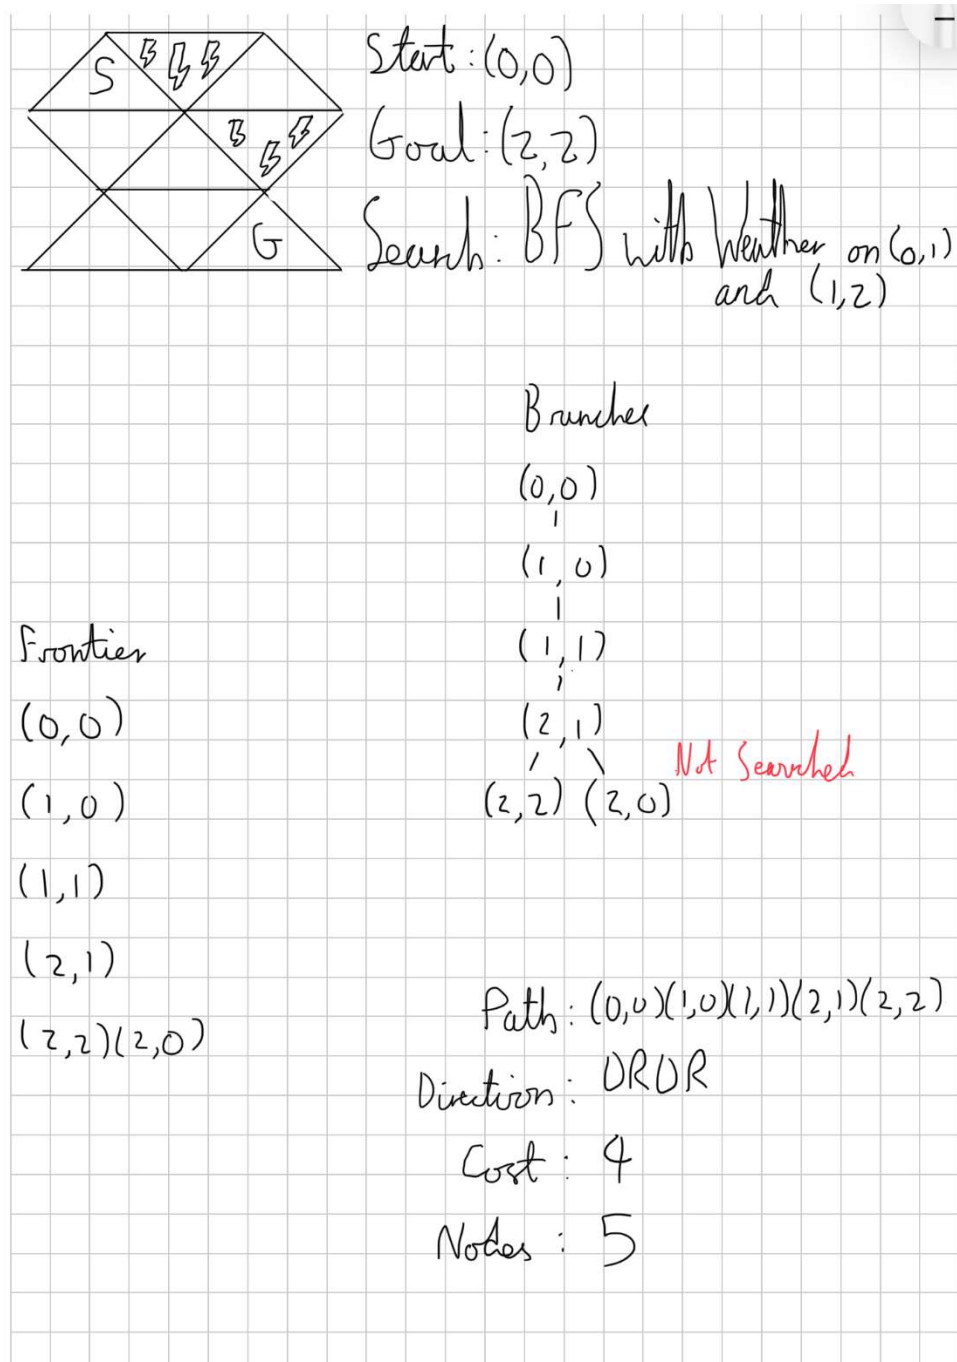 S
G
Start: (0,0)
Goal: (2,2)
Search: BFS with Weather on (0,1)
and (1,2)
Branches
(0,0)
(1,0)
(1,1)
(2,1)
Not Searched
(2,2) (2,0)
Frontier
(0,0)
(1,0)
(1,1)
(2,1)
(2,2)(2,0)
Path: (0,0)(1,0)(1,1)(2,1)(2,2)
Direction: DRDR
Cost: 4
Nodes: 5